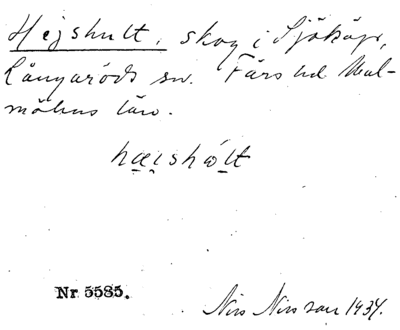 Hejshult, skog i Sjököp,
Långaröds sn. Färs hd Mal-
möhus län.
hæi̯shól̯t
Nr 5585.
Nils Nilsson 1934.